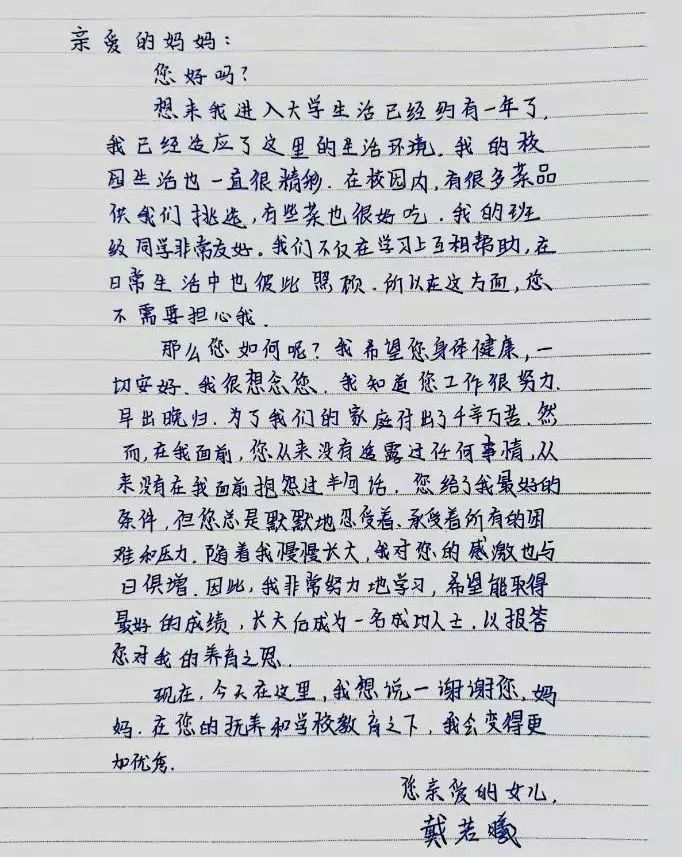 亲爱的妈妈：
您好吗？
想来我进入大学生活已经约有一年了，
我已经适应了这里的生活环境。我的校
园生活也一直很精彩。在校园内，有很多菜品
供我们挑选，有些菜也很好吃。我的班
级同学非常友好。我们不仅在学习上互相帮助，在
日常生活中也彼此照顾。所以在这方面，您
不需要担心我。
那么您如何呢？我希望您身体健康，一
切安好。我很想念您。我知道您工作很努力，
早出晚归。为了我们的家庭付出了千辛万苦。然
而，在我面前，您从来没有透露过任何事情，从
来没有在我面前抱怨过半句话。您给了我最好的
条件，但您总是默默地忍受着、承受着所有的困
难和压力。随着我慢慢长大，我对您的感激也与
日俱增。因此，我非常努力地学习，希望能取得
最好的成绩，长大后成为一名成功人士，以报答
您对我的养育之恩。
现在，今天在这里，我想说一谢谢您，妈
妈。在您的抚养和学校教育之下，我会变得更
加优秀。
您亲爱的女儿，
戴若曦